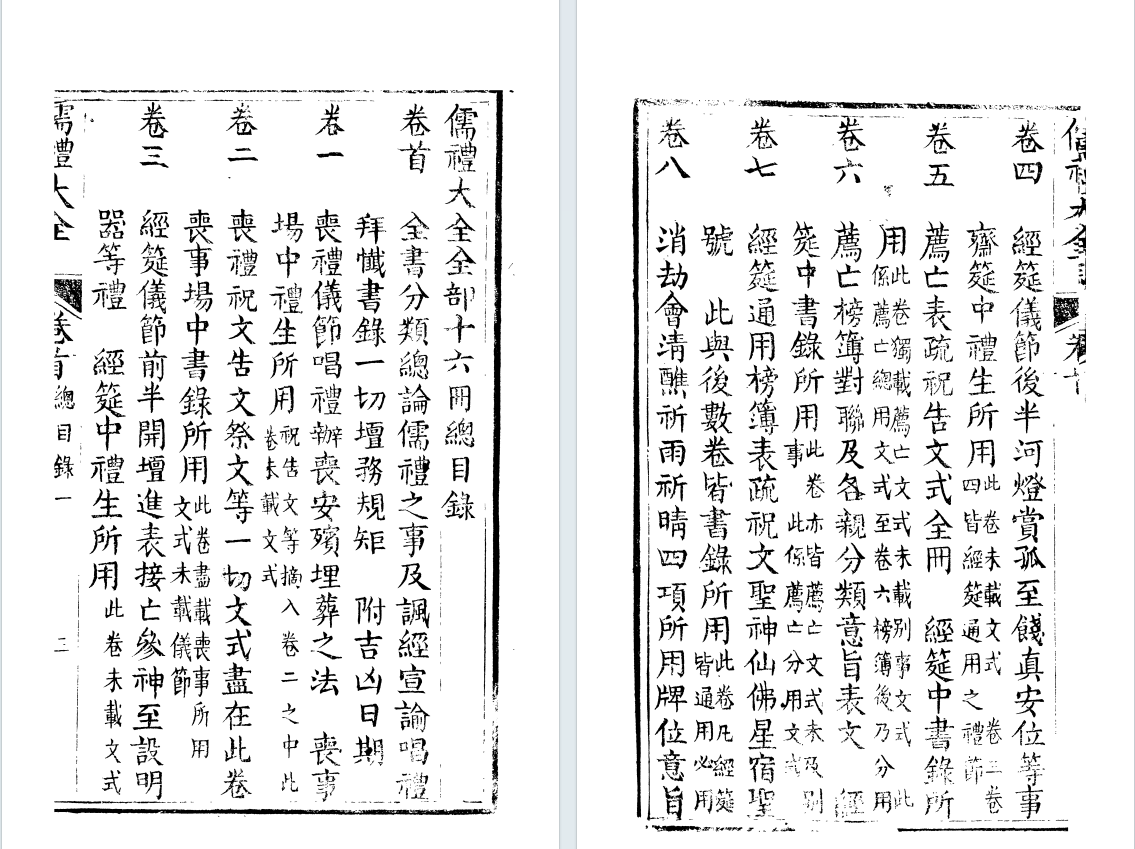 儒禮大全全部十六冊總目錄
卷首 全書分類總論儒禮之事及諷經宣論唱禮
拜懺書錄一切壇務規矩 附吉凶日期
卷一 喪禮儀節唱禮辦喪安殯埋葬之法 喪事
場中禮生所用 祝告文等摘入卷二之中此
卷未載文式
卷二 喪禮祝文告文祭文等一切文式盡在此卷
喪事場中書錄所用 此卷盡載喪事所用
文式未載儀節
卷三 經筵儀節前半開壇進表接亡參神至設明
器等禮 經筵中禮生所用 此卷未載文式
儒禮大全 卷首 總目錄一 二
儒禮大全
卷四 經筵儀節後半河燈賞孤至餞真安位等事
齋筵中禮生所用 此卷未載文式 卷三卷
四皆經筵通用之禮節
卷五 薦亡表疏祝告文式全冊 經筵中書錄所
用 此卷獨載薦亡文式未載別事文式 此
係薦亡總用文式至卷六榜簿後乃分用
卷六 薦亡榜簿對聯及各親分類意旨表文 經
筵中書錄所用 此卷亦皆薦亡文式未及別
事 此係薦亡分用文式
卷七 經筵通用榜簿表疏祝文聖神仙佛星宿聖
號 此與後數卷皆書錄所用 此卷凡經筵
皆通用必用
卷八 消劫會清醮祈雨祈晴四項所用牌位意旨